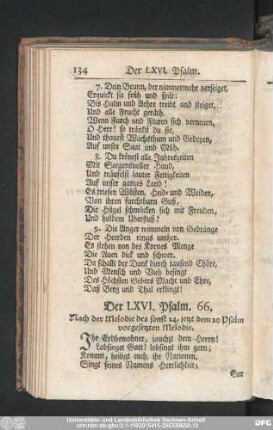 134 Der LXVI. Psalm.
7. Dein Brunn, der nimmermehr verseiget,
Erquickt sie früh und spät:
Bis Halm und Aehre treibt und steiget,
Und alle Frucht geräth.
Wenn Furch und Fluren sich verneuen,
O Herr! so tränkst du sie,
Und thauest Wachsthum und Gedeyen,
Auf unsre Saat und Müh.
8. Du krönest alle Jahreszeiten
Mit Seegensvoller Hand,
Und träufelst lauter Fettigkeiten
Auf unser ganzes Land!
Es triefen Wüsten, Heid- und Weider,
Von ihren furchtbarn Guß,
Die Hügel schmücken sich mit Freuden,
Und holdem Ueberfluß?
9. Die Anger wimmeln von Gedränge
Der Heerden rings umher.
Es stehen von des Kornes Menge
Die Auen dick und schwer.
Da schallt der Dank durch tausend Chöre,
Und Mensch und Vieh besingt
Des Höchsten Gebers Macht und Ehre,
Daß Berg und Thal erklingt!
Der LXVI. Psalm. 66.
Nach der Melodie des sonst 24. jetzt dem 20 Psalm
vorgesetzten Melodie.
Ihr Erdbewohner, jauchzt dem Herrn!
Lobsinget Gott! lobsingt ihm gern;
Kommt, heiligt euch, ihr Nationen,
Singt seines Namens Herrlichkeit;
Vor
Universitäts- und Landesbibliothek Sachsen-Anhalt
DFG